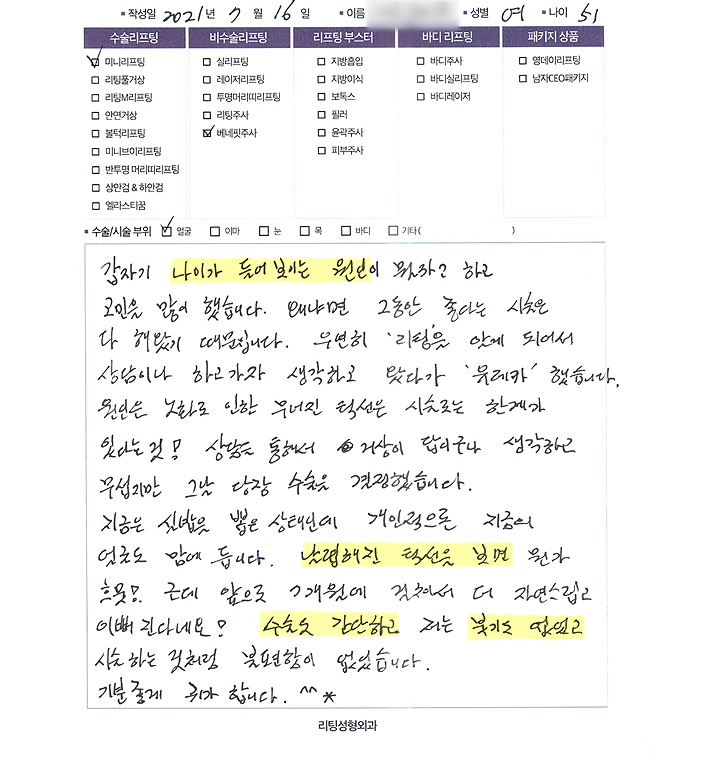 작성일 2021년 7월 16일 이름 성별 여 나이 51
수술리프팅 비수술리프팅 리프팅 부스터 바디 리프팅 패키지 상품
미니리프팅 실리프팅 지방흡입 바디주사 영데이리프팅
리팅풀거상 레이저리프팅 지방이식 바디실리프팅 남자CEO패키지
리팅M리프팅 투명머리띠리프팅 보톡스 바디레이저
안면거상 리팅주사 필러
볼턱리프팅 베네핏주사 윤곽주사
미니브이리프팅 피부주사
반투명 머리띠리프팅
상안검 & 하안검
엘라스티꿈
수술/시술 부위 얼굴 이마 눈 목 바디 기타( )
갑자기 나이가 들어 보이는 원인이 뭘까? 하고
고민을 많이 했습니다. 왜냐면 그동안 좋다는 시술은
다 해왔기 때문입니다. 우연히 '리팅'을 알게 되어서
상담이나 하고가자 생각하고 왔다가 '유레카' 했습니다.
원인은 노화로 인한 무너진 턱선은 시술로는 한계가
있다는것! 상담을 통해서 거상이 답이구나 생각하고
무섭지만 그날 당장 수술을 결정했습니다.
지금은 실밥을 뽑은 상태인데 개인적으론 지금의
얼굴도 맘에 듭니다. 날렵해진 턱선을 보면 뭔가
흐뭇! 근데 앞으로 3개월에 걸쳐서 더 자연스럽고
이뻐진다네요! 수술도 간단하고 저는 붓기도 없었고
시술하는 것처럼 불편함이 없었습니다.
기분좋게 귀가 합니다. ^^*
리팅성형외과